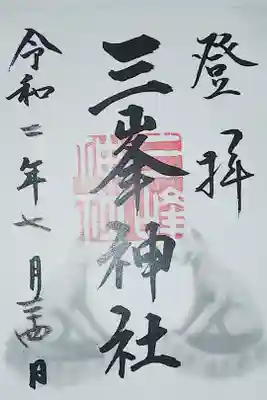 登拝
三峯神社
令和二年七月廿四日
三峰
神社